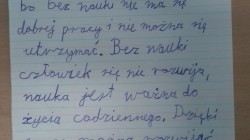 bo bez nauki nie ma się
dobrej pracy i nie można się
utrzymać. Bez nauki
człowiek się nie rozwija,
nauka jest ważna do
życia codziennego. Dzięki
można rozwijać